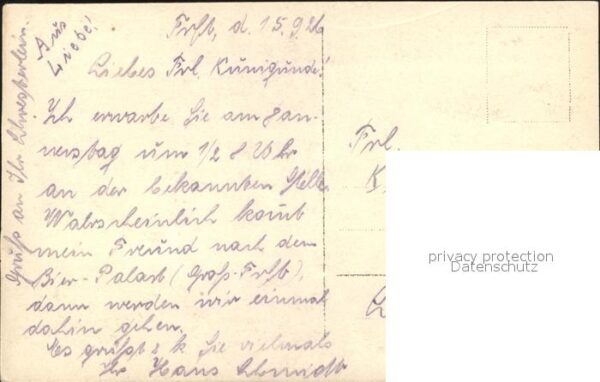 Frkft, d. 15.9.26
Aus
Liebe!
Liebes Frl. Kunigunde!
Ich erwarte Sie am Sam-
nerstag um 1/2 8 Uhr
an der bekannten Stelle
Wahrscheinlich kommt
mein Freund nach dem
Bier-Palast (Groß-Frkft),
dann werden wir einmal
dahin gehen.
Es grüßt & k Sie vielmals
Ihr Hans Schmidt
Gruß an Ihr Schwesterlein
Frl.
K.
privacy protection
Datenschutz